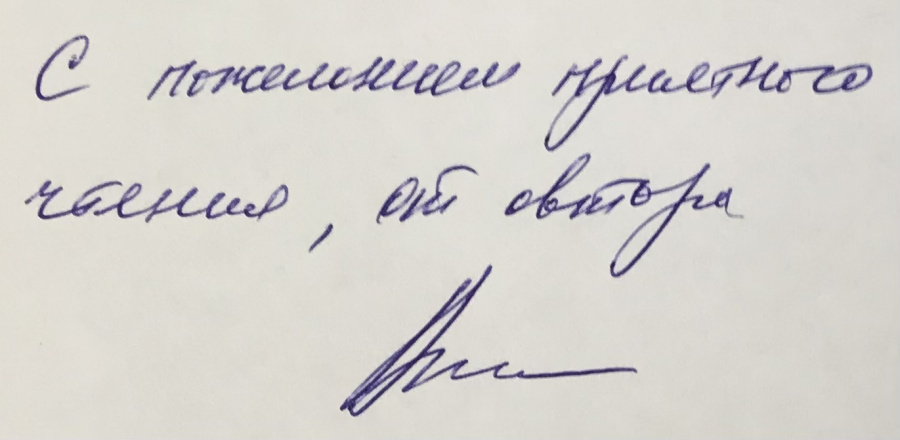 С пожеланием приятного
чтения, от автора